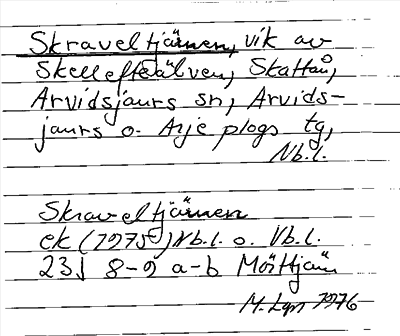 Skraveltjärnen, vik av
Skellefteälven, Skattån,
Arvidsjaurs sn, Arvids-
jaurs o. Arjeplogs tg,
Nb.l.
Skraveltjärnen
ek (1975) Nb.l. o. Vb.l.
23J 8-9 a-b Mörttjärn
M. Lgn 1976